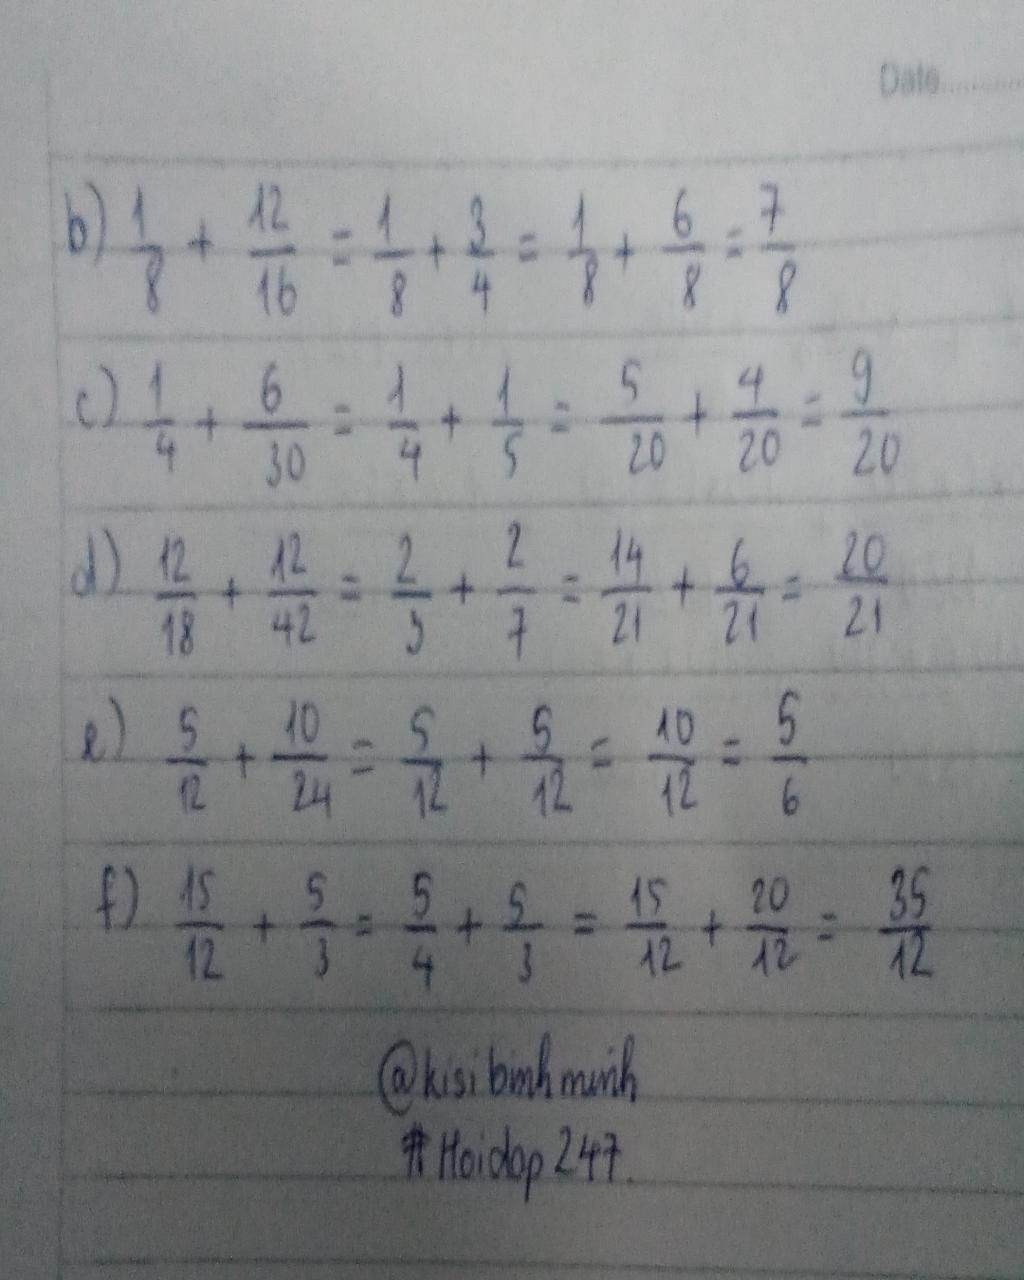 Date..........
b) 1/8 + 12/16 = 1/8 + 3/4 = 1/8 + 6/8 = 7/8
c) 1/4 + 6/30 = 1/4 + 1/5 = 5/20 + 4/20 = 9/20
d) 12/18 + 12/42 = 2/3 + 2/7 = 14/21 + 6/21 = 20/21
e) 5/12 + 10/24 = 5/12 + 5/12 = 10/12 = 5/6
f) 15/12 + 5/3 = 5/4 + 5/3 = 15/12 + 20/12 = 35/12
@kisibinhminh
#Hoidap247.